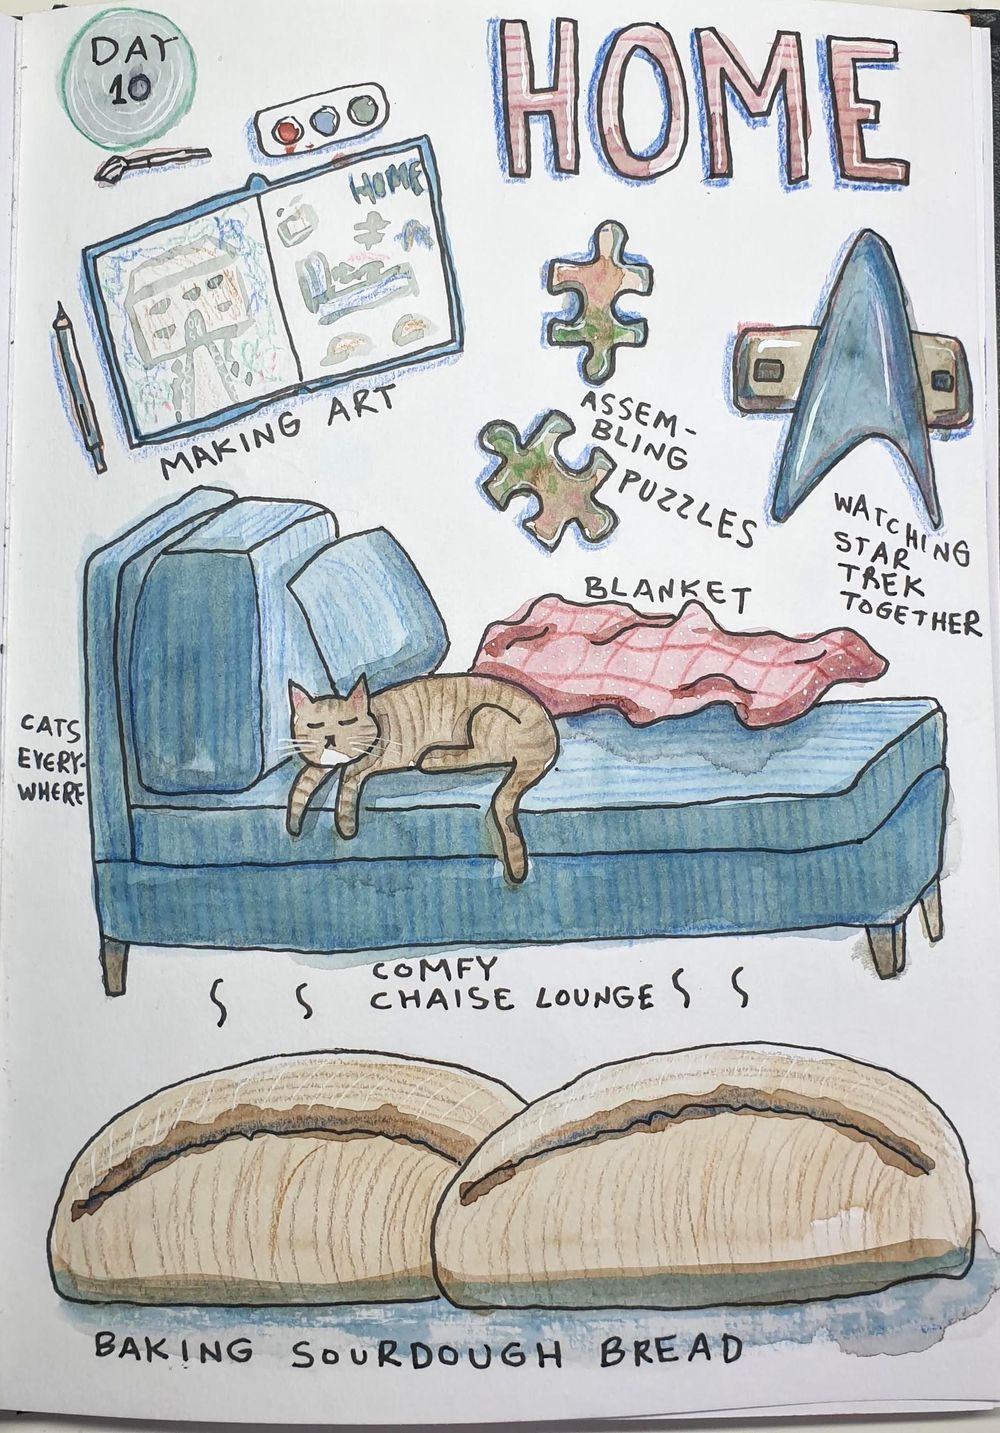 DAY
10
HOME
HOME
MAKING ART
ASSEM-
BLING
PUZZLES
WATCHING
STAR
TREK
TOGETHER
BLANKET
CATS
EVERY-
WHERE
COMFY
CHAISE LOUNGE
BAKING SOURDOUGH BREAD